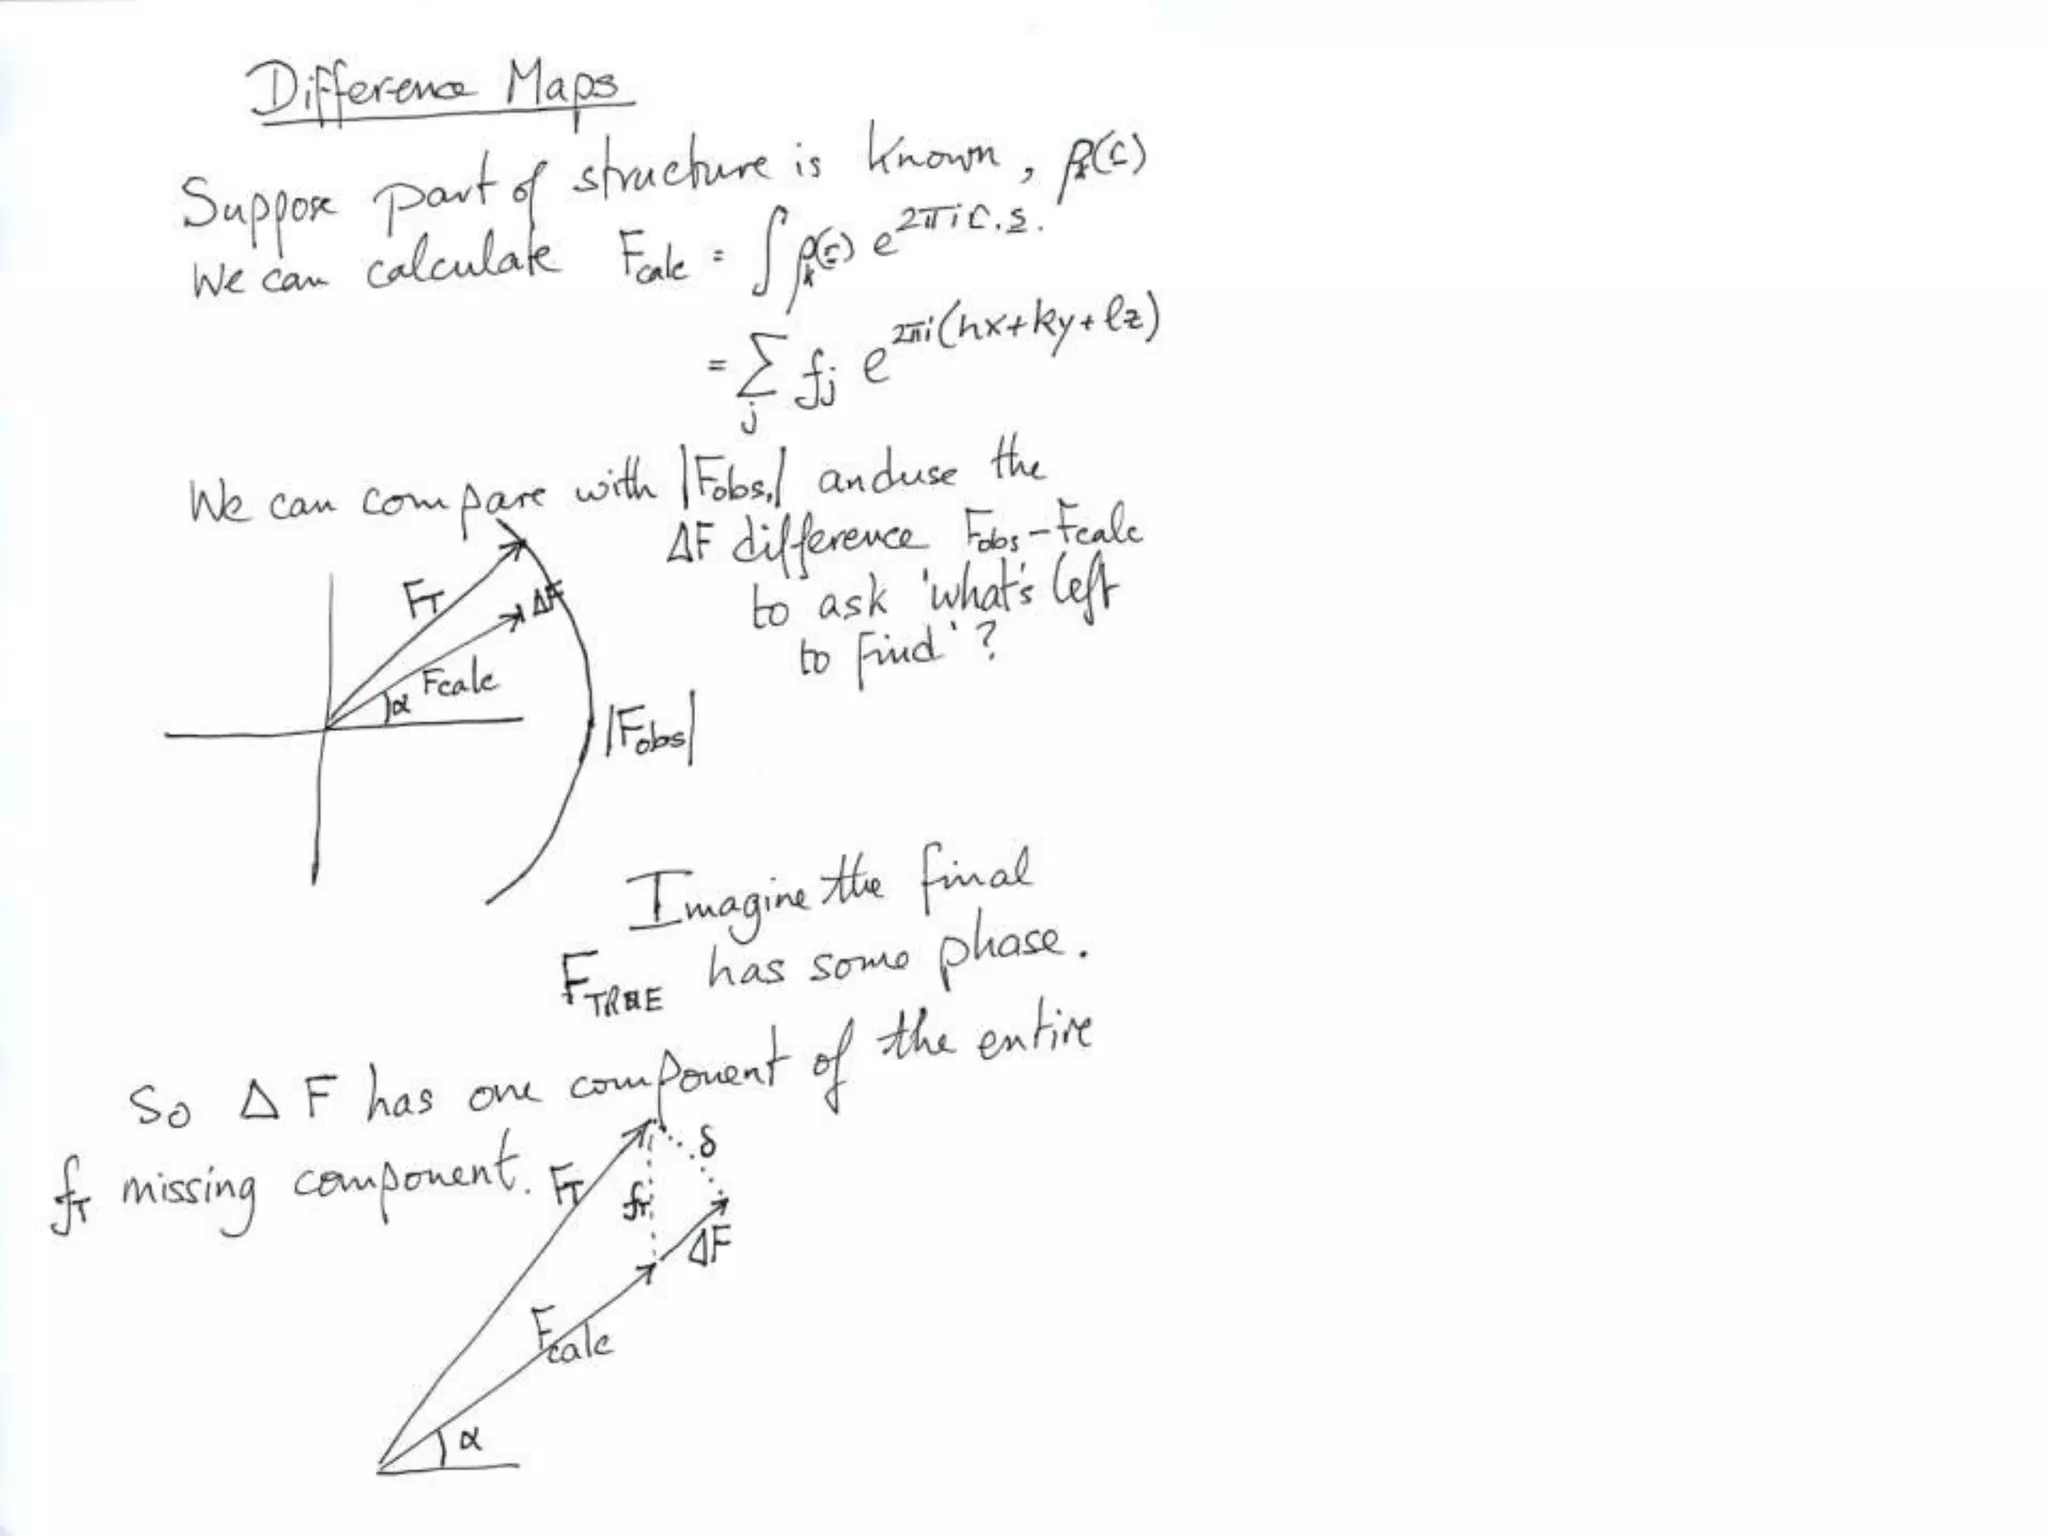 Difference Maps
Suppose part of structure is known, ρₖ(r)
We can calculate Fcalc = ∫ρₖ(r) e^2πi r.s.
= Σj fj e^2πi(hx+ky+lz)
We can compare with |Fobs.| and use the
ΔF difference Fobs - Fcalc
to ask 'what's left
to find'?
FT
ΔF
Fcalc
α
|Fobs|
Imagine the final
FTRUE has some phase.
So ΔF has one component of the entire
fT missing component.
FT
fT
δ
ΔF
Fcalc
α